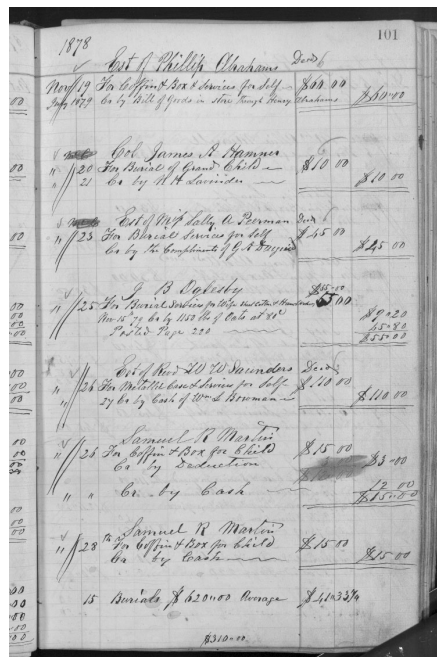 101
1878
Est of Phillip Abrahams Decd
Nov 19 For Coffin & Box & Services for Self $60.00
Jany 1879 Cr by Bill of Goods in Store through Henry Abrahams $60.00
Col James A Hamner
" 20 For Burial of Grand Child $10.00
" 21 Cr by N H Lavinder $10.00
Est of Mrs Sally A Purman Decd
" 23 For Burial Services for Self $45.00
Cr by the Compliments of G A $45.00
J B Oglesby $55.00
" 25 For Burial Services for Wife 55.00
Nov 15th 79 Cr by 1150 lbs of Oats at 80c $9.20
Posted Page 220 45.80
$55.00
Est of Revd W W Saunders Decd
" 26 For Metallic Case & Services for Self $110.00
27 Cr by Cash of Wm S Bowman $110.00
Samuel R Martin
" 26 For Coffin & Box for Child $15.00
Cr by Deduction $3.00
" " Cr by Cash 12.00
$15.00
Samuel R Martin
" 28 For Coffin & Box for Child $15.00
Cr by Cash $15.00
15 Burials $620.00 Average $41.33
$310.00